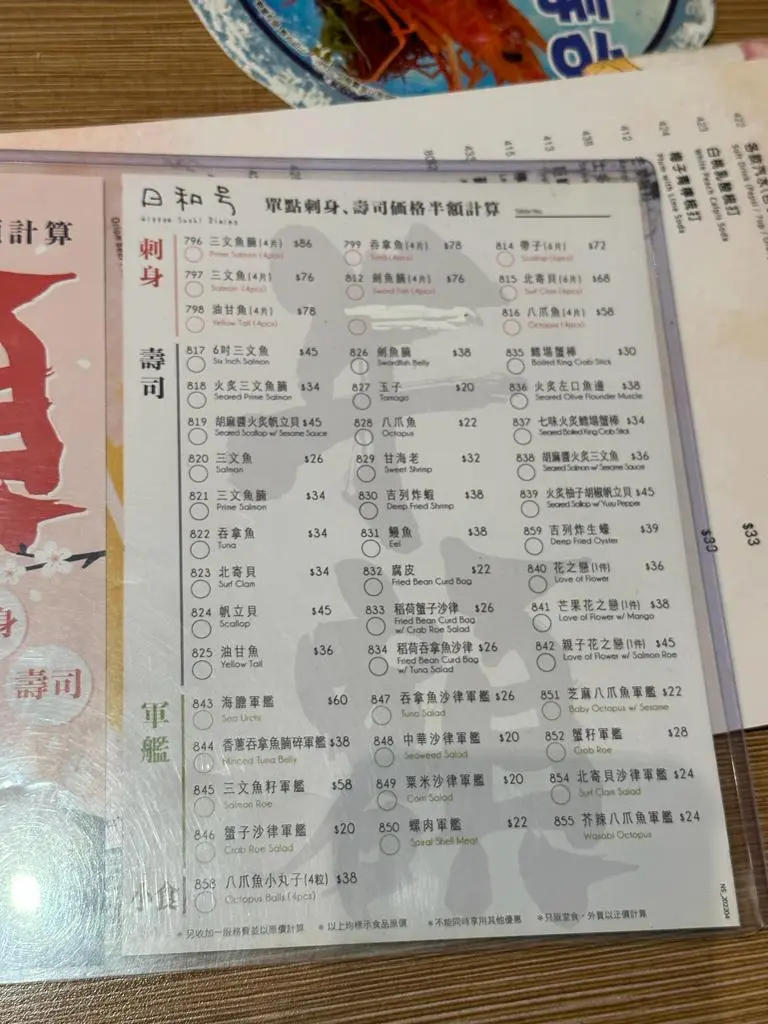 日和号
單點刺身、壽司価格半額計算
Table No.
計算
刺身
796 三文魚腩(4片) $86
Prime Salmon (4pcs)
797 三文魚(4片) $76
Salmon (4pcs)
798 油甘魚(4片) $78
Yellow Tail (4pcs)
799 吞拿魚(4片) $78
Tuna (4pcs)
812 劍魚腩(4片) $76
Sword Fish (4pcs)
814 帶子(6片) $72
Scallop (6pcs)
815 北寄貝(6片) $68
Surf Clam (6pcs)
816 八爪魚(4片) $58
Octopus (4pcs)
壽司
817 6吋三文魚 $45
Six Inch Salmon
818 火炙三文魚腩 $34
Seared Prime Salmon
819 胡麻醬火炙帆立貝 $45
Seared Scallop w/ Sesame Sauce
820 三文魚 $26
Salmon
821 三文魚腩 $34
Prime Salmon
822 吞拿魚 $34
Tuna
823 北寄貝 $34
Surf Clam
824 帆立貝 $45
Scallop
825 油甘魚 $36
Yellow Tail
826 劍魚腩 $38
Swordfish Belly
827 玉子 $20
Tamago
828 八爪魚 $22
Octopus
829 甘海老 $32
Sweet Shrimp
830 吉列炸蝦 $38
Deep Fried Shrimp
831 鰻魚 $38
Eel
832 腐皮 $22
Fried Bean Curd Bag
833 稻荷蟹子沙律 $26
Fried Bean Curd Bag
w/ Crab Roe Salad
834 稻荷吞拿魚沙律 $26
Fried Bean Curd Bag
w/ Tuna Salad
835 鱈場蟹棒 $30
Boiled King Crab Stick
836 火炙左口魚邊 $38
Seared Olive Flounder Muscle
837 七味火炙鱈場蟹棒 $34
Seared Boiled King Crab Stick
838 胡麻醬火炙三文魚 $36
Seared Salmon w/ Sesame Sauce
839 火炙柚子胡椒帆立貝 $45
Seared Scallop w/ Yuzu Pepper
859 吉列炸生蠔 $39
Deep Fried Oyster
840 花之戀(1件) $36
Love of Flower
841 芒果花之戀(1件) $38
Love of Flower w/ Mango
842 親子花之戀(1件) $45
Love of Flower w/ Salmon Roe
軍艦
843 海膽軍艦 $60
Sea Urchi
844 香蔥吞拿魚腩碎軍艦 $38
Minced Tuna Belly
845 三文魚籽軍艦 $58
Salmon Roe
846 蟹子沙律軍艦 $20
Crab Roe Salad
847 吞拿魚沙律軍艦 $26
Tuna Salad
848 中華沙律軍艦 $20
Seaweed Salad
849 粟米沙律軍艦 $20
Corn Salad
850 螺肉軍艦 $22
Spiral Shell Meat
851 芝麻八爪魚軍艦 $22
Baby Octopus w/ Sesame
852 蟹籽軍艦 $28
Crab Roe
854 北寄貝沙律軍艦 $24
Surf Clam Salad
855 芥辣八爪魚軍艦 $24
Wasabi Octopus
小食
858 八爪魚小丸子(4粒) $38
Octopus Balls (4pcs)
*另收加一服務費並以原價計算 *以上均標示食品原價 *不能同時享用其他優惠 *只限堂食，外賣以正價計算
NS_202204
身
壽司
422
423 白桃乳酸梳打
White Peach Calpis Soda
424 梅子青檸梳打
Plum with Lime Soda
412
438
413
415
$33
$30